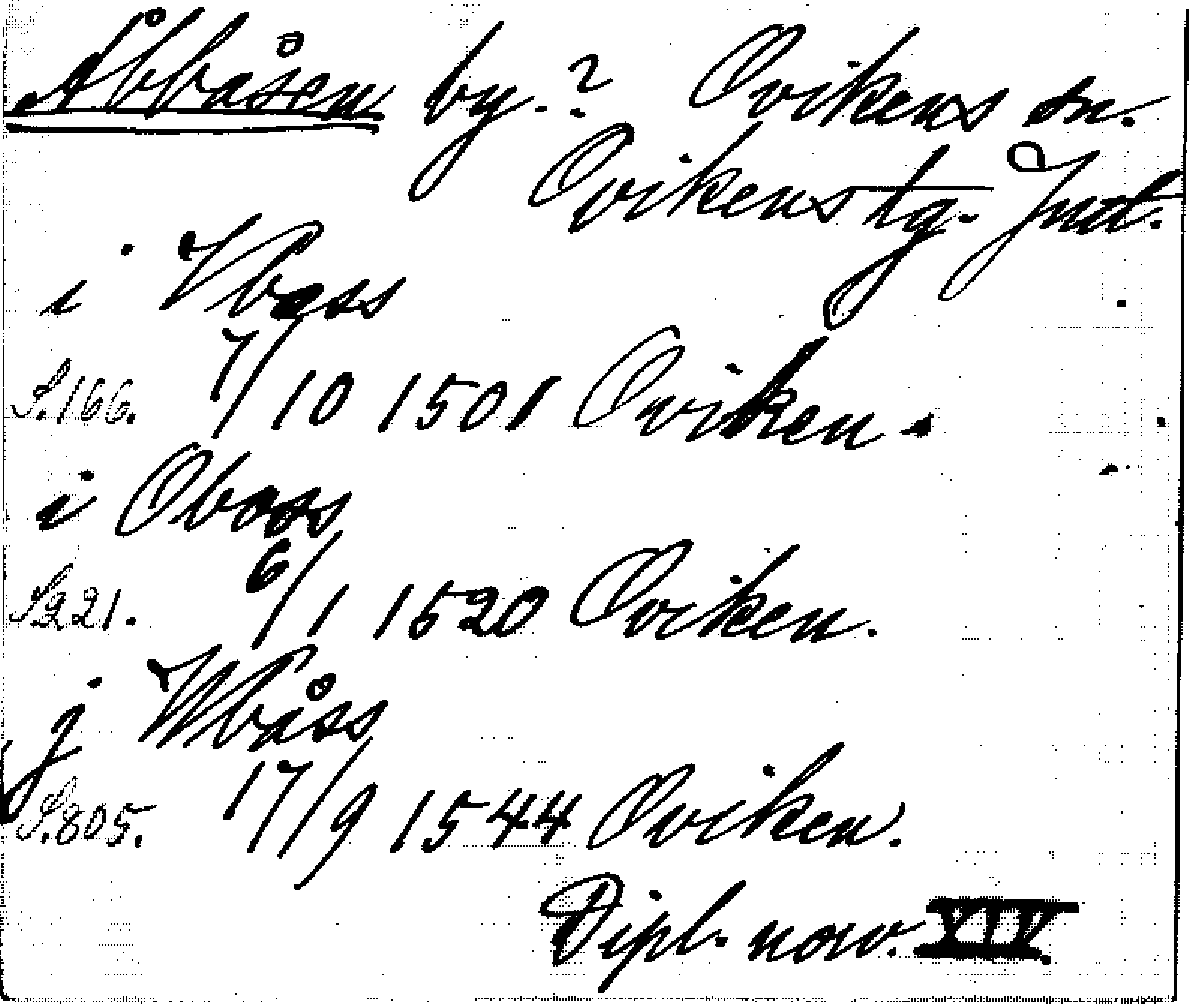 Åbbåsen by.? Ovikens sn.
Ovikens tg. Jmtl.
i Vbass
S.166. 7/10 1501 Oviken.
i Obass
S221. 6/1 1520 Oviken.
j Wbåss
S.805. 17/9 1544 Oviken.
Dipl. norv. XIV.